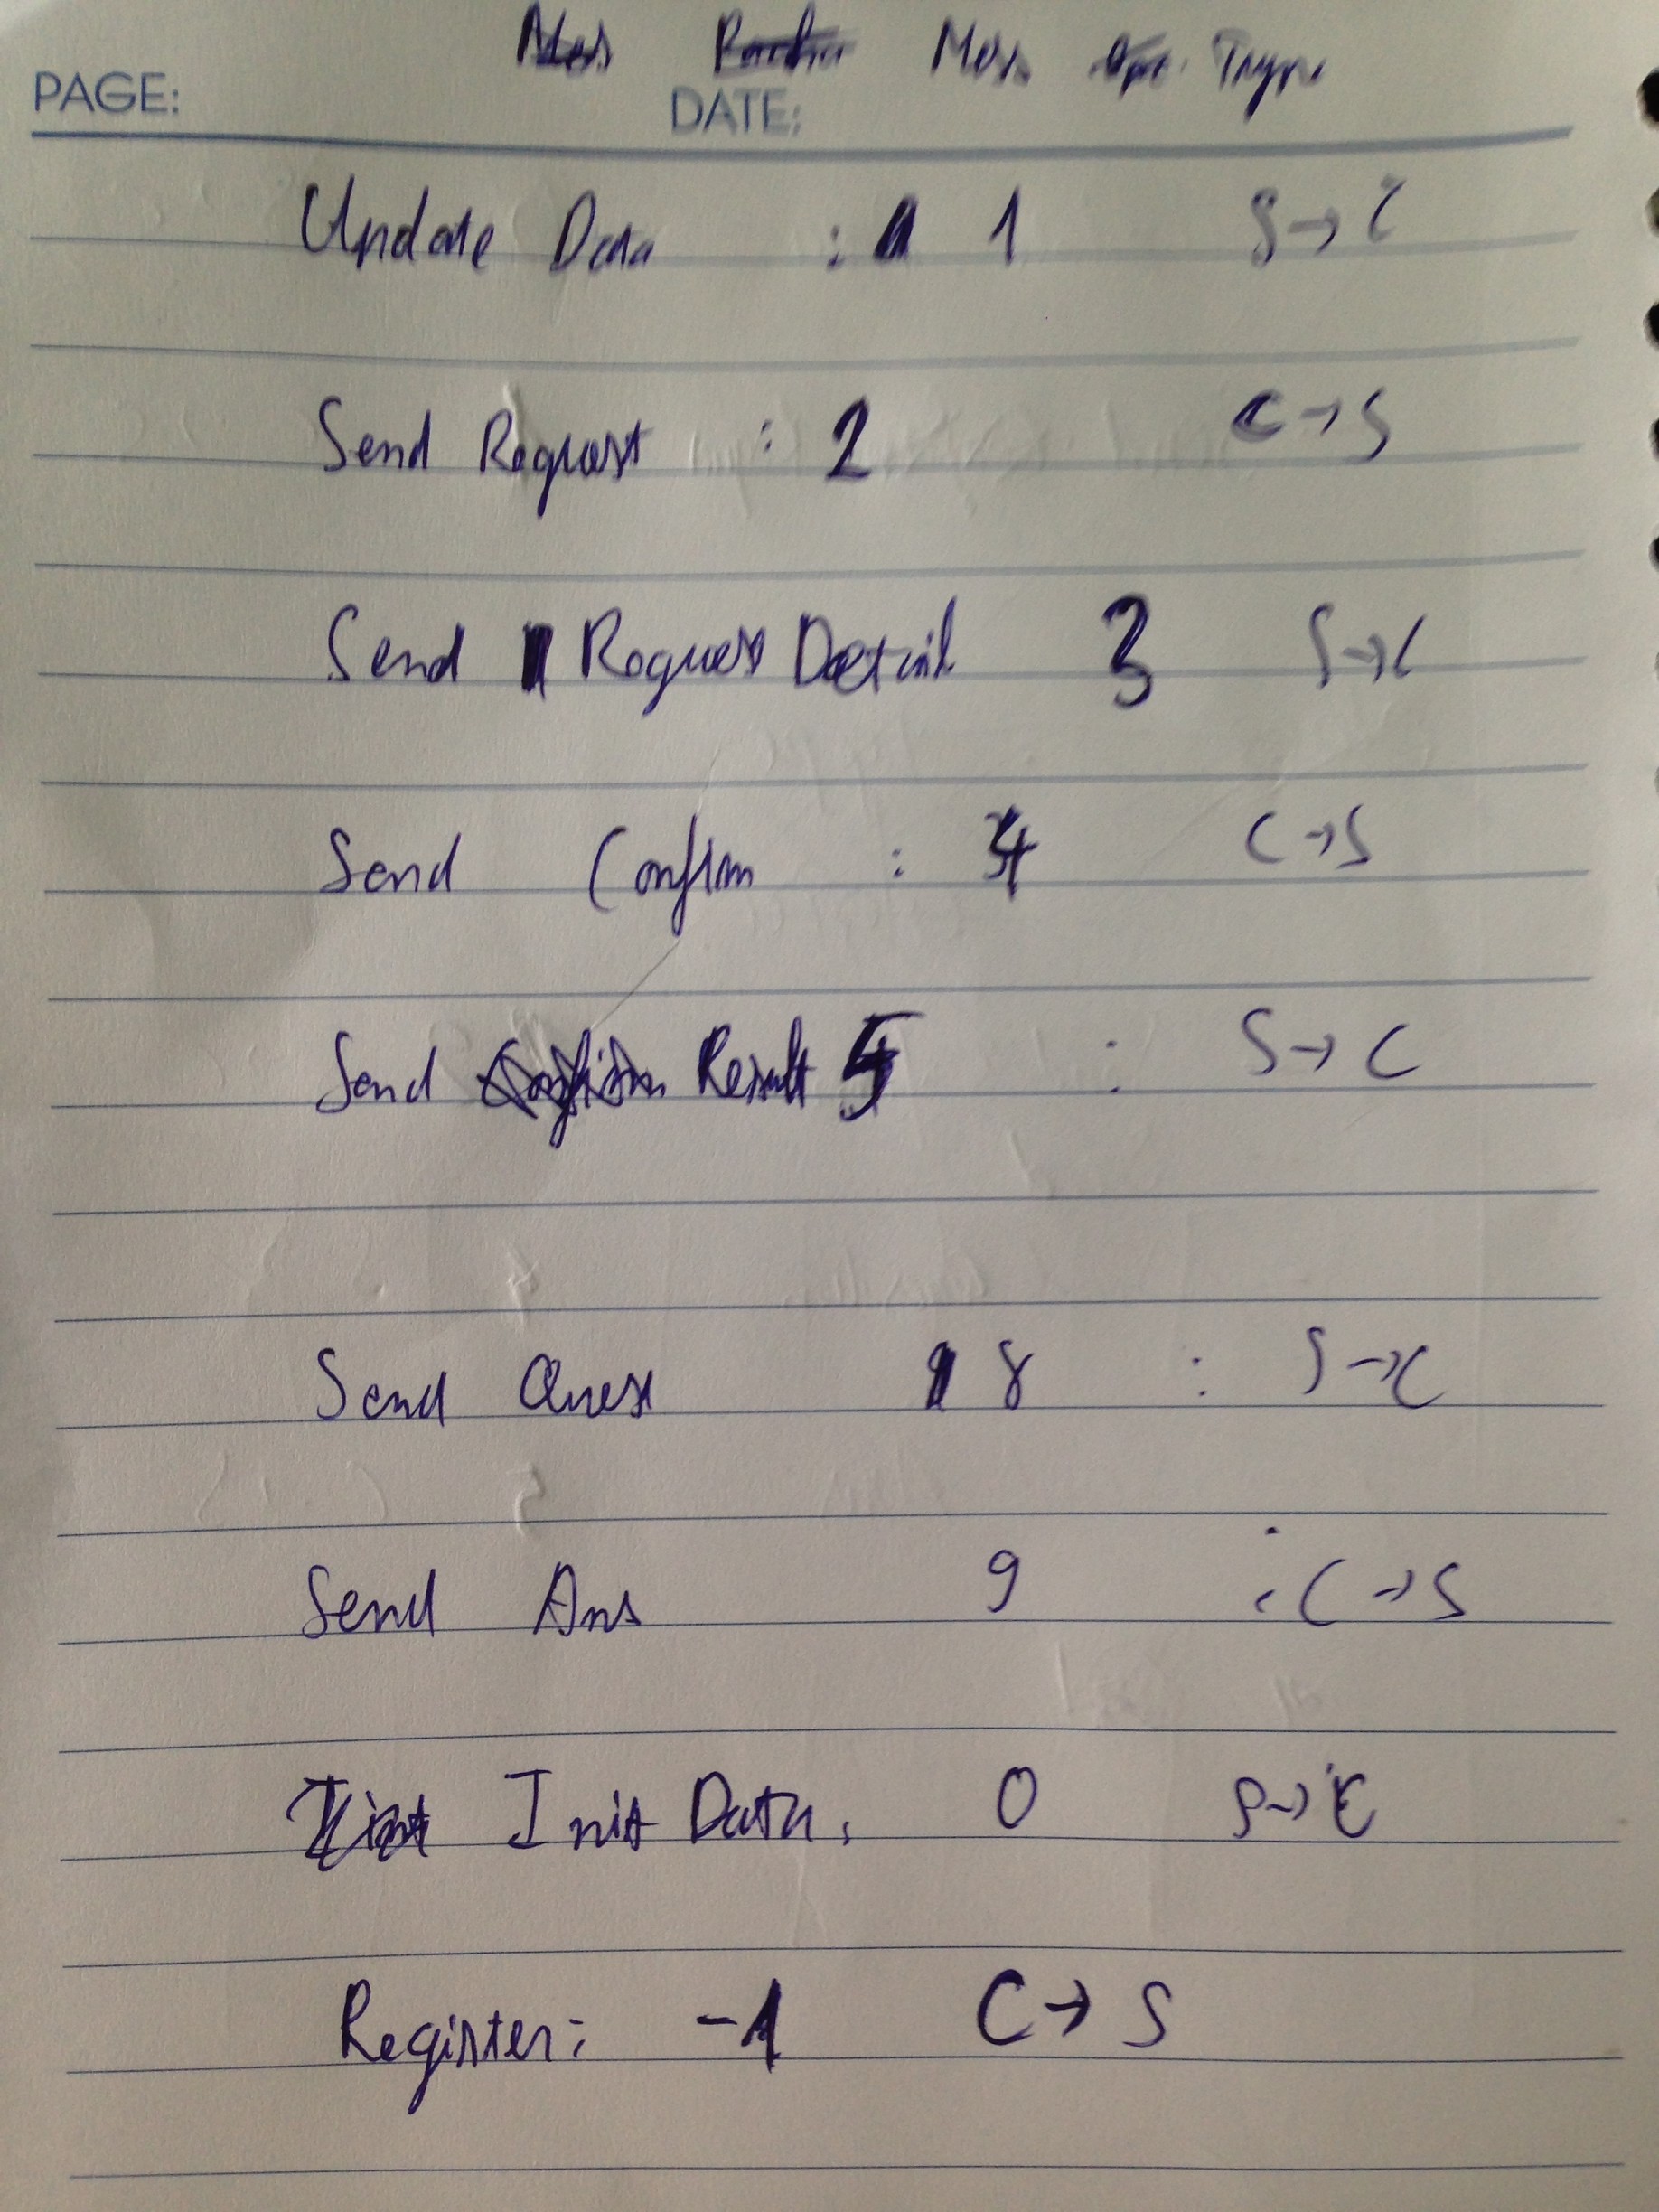 Mess. Type
PAGE: DATE:
Update Data : 1 S→C
Send Request : 2 C→S
Send Request Detail 3 S→C
Send Confirm : 4 C→S
Send Result 5 : S→C
Send Quest 8 : S→C
Send Ans 9 : C→S
Init Data : 0 S→C
Register: -1 C→S